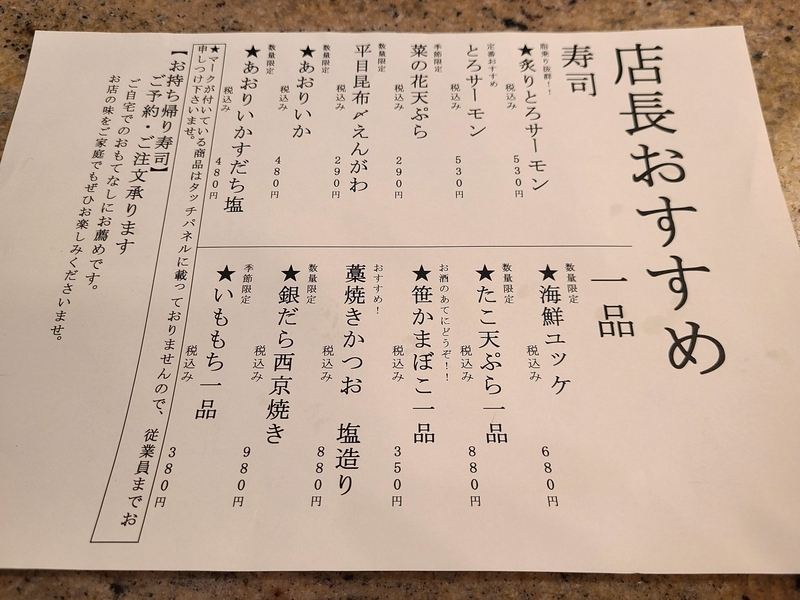 店長おすすめ
寿司
脂乗り抜群！！
★炙りとろサーモン
税込み 530円
定番おすすめ
とろサーモン
税込み 530円
季節限定
菜の花天ぷら
税込み 290円
数量限定
平目昆布〆えんがわ
税込み 290円
数量限定
★あおりいか
税込み 480円
数量限定
★あおりいかすだち塩
税込み 480円
一品
数量限定
★海鮮ユッケ
税込み 680円
数量限定
★たこ天ぷら一品
税込み 880円
お酒のあてにどうぞ！！
★笹かまぼこ一品
税込み 350円
おすすめ！
藁焼きかつお 塩造り
税込み 880円
数量限定
★銀だら西京焼き
税込み 980円
季節限定
★いももち一品
税込み 380円
★マークが付いている商品はタッチパネルに載っておりませんので、従業員までお
申しつけ下さいませ。
【お持ち帰り寿司】
ご予約・ご注文承ります
ご自宅でのおもてなしにお薦めです。
お店の味をご家庭でもぜひお楽しみくださいませ。